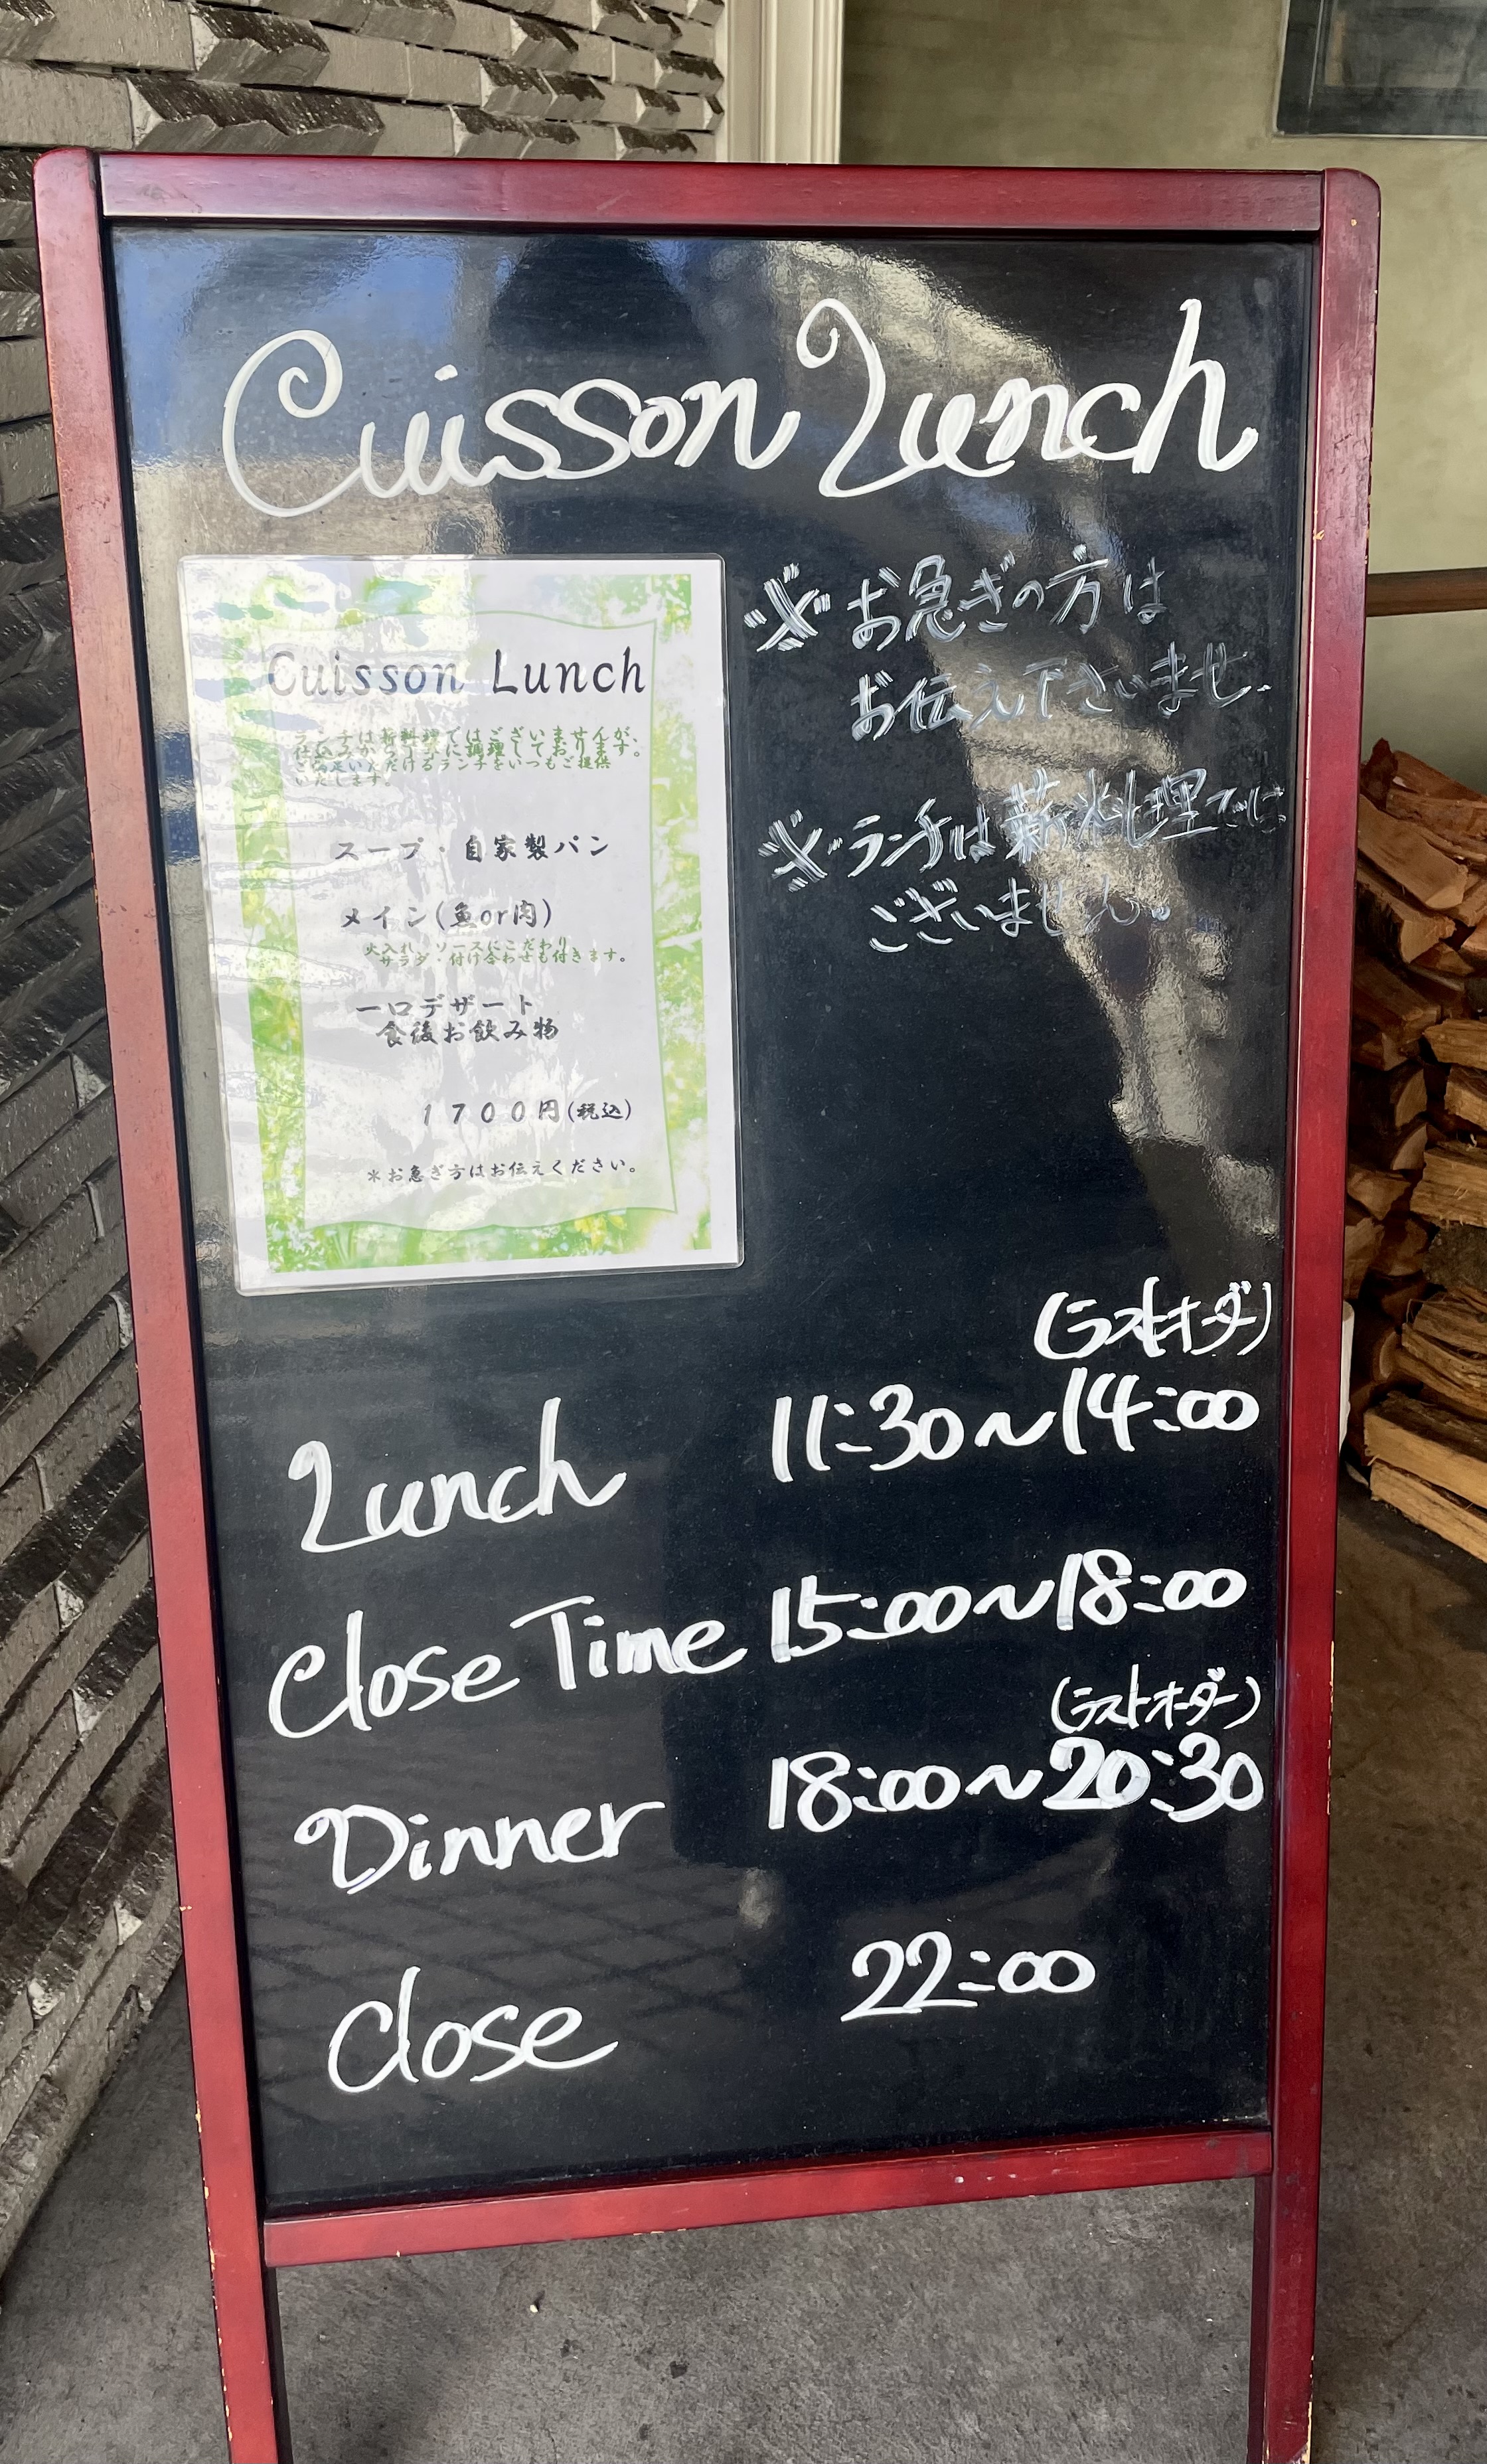 Cuisson Lunch
Cuisson Lunch
ランチは薪料理ではございませんが、
仕込みから丁寧に調理しております。
ご満足いただけるランチをいつもご提供
いたします。
スープ・自家製パン
メイン(魚or肉)
火入れ、ソースにこだわり
サラダ・付け合わせも付きます。
一口デザート
食後お飲み物
1700円(税込)
*お急ぎ方はお伝えください。
※お急ぎの方は
お伝え下さいませ.
※ランチは薪料理では
ございません。
(ラストオーダー)
Lunch 11:30~14:00
Close Time 15:00~18:00
(ラストオーダー)
Dinner 18:00~20:30
Close 22:00